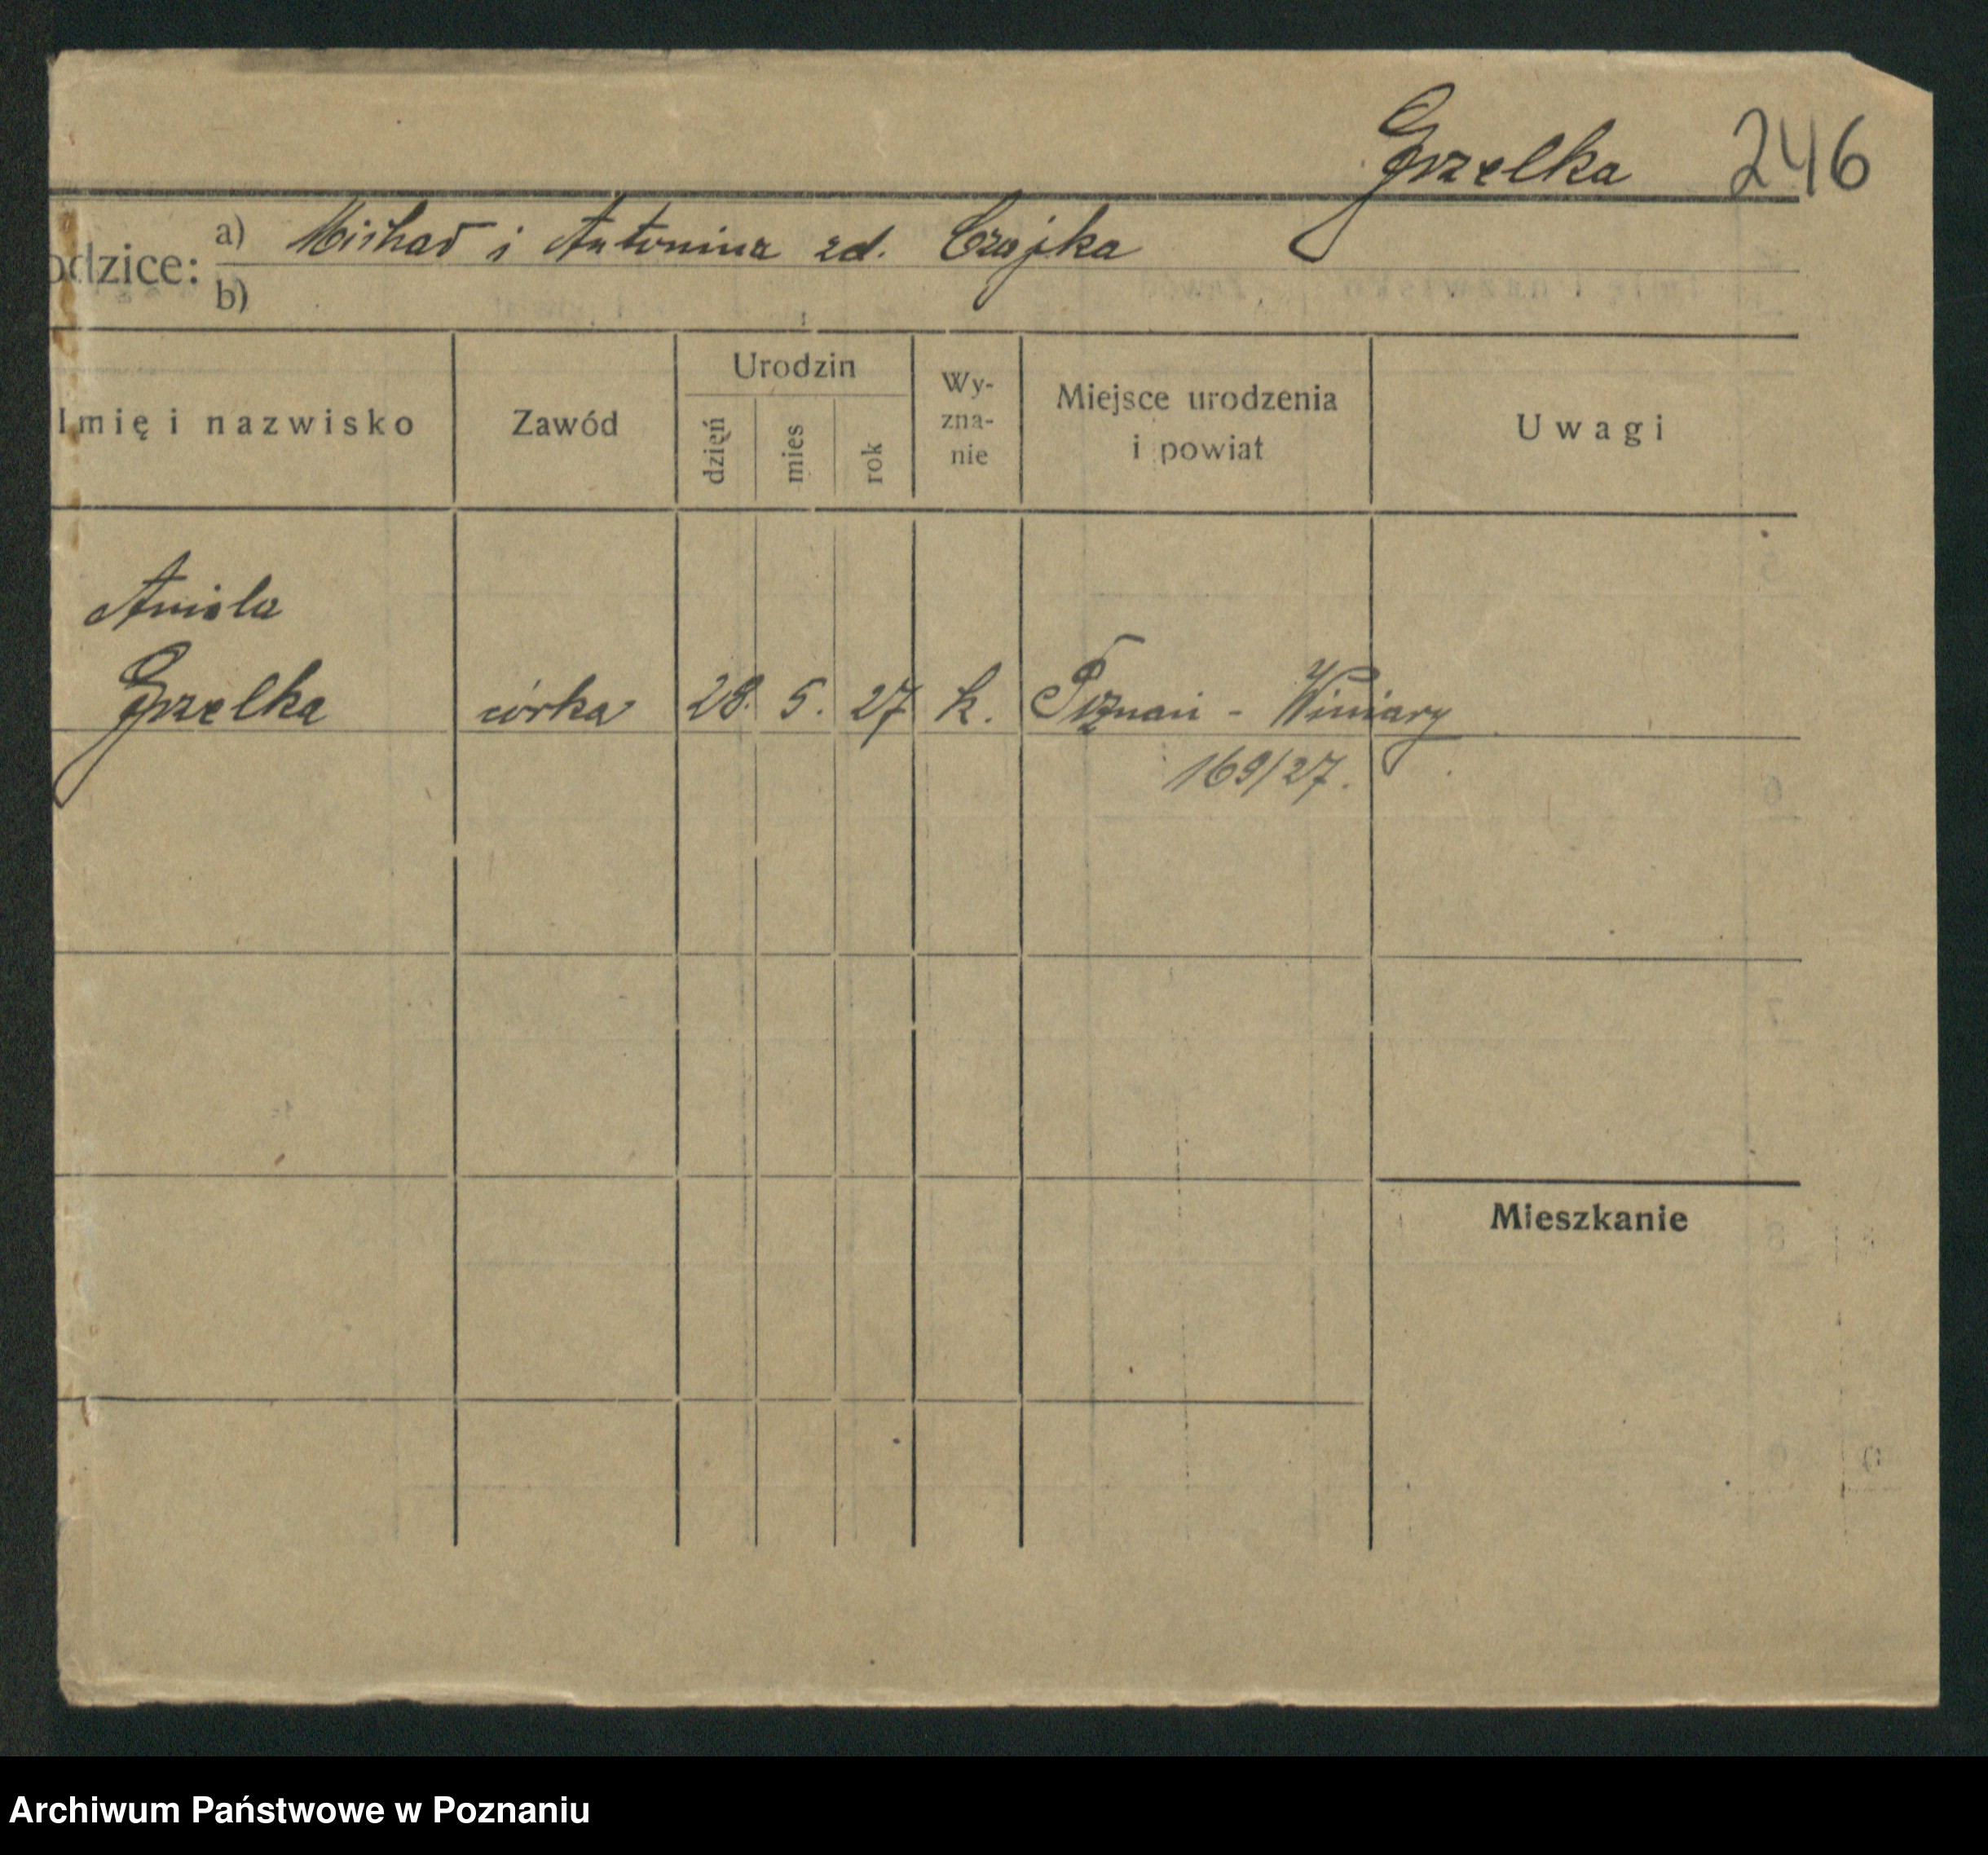 Grzelka 246
odzice: a) Michał i Antonina zd. Czajka
b)
Imię i nazwisko Zawód Urodzin dzień mies rok Wy-zna-nie Miejsce urodzenia i powiat Uwagi
Aniela
Grzelka córka 28. 5. 27 k. Poznań - Winiary
169/27.
Mieszkanie
Archiwum Państwowe w Poznaniu